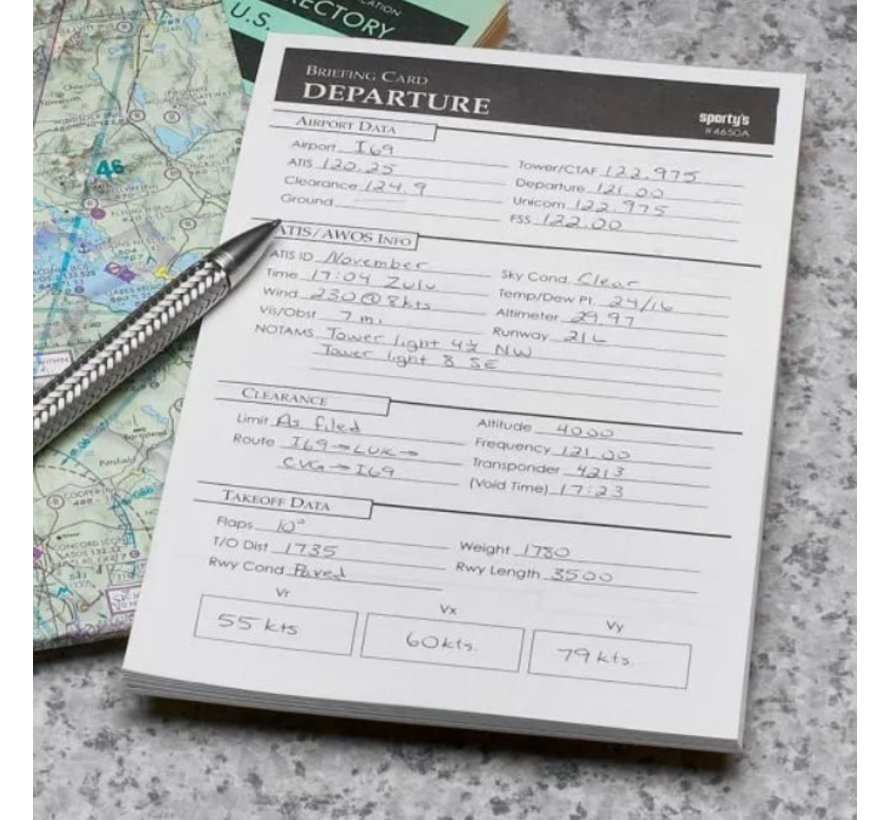 U.S.
ECTORY
BRIEFING CARD
DEPARTURE
sporty's
#4650A
AIRPORT DATA
Airport I69
ATIS 120.25
Clearance 124.9
Ground
Tower/CTAF 122.975
Departure 121.00
Unicom 122.975
FSS 122.00
ATIS/AWOS INFO
ATIS ID November
Time 17:04 Zulu
Wind 230@8kts
Vis/Obst 7 mi
NOTAMS Tower light 4½ NW
Tower light 8 SE
Sky Cond. Clear
Temp/Dew Pt. 24/16
Altimeter 29.97
Runway 21L
CLEARANCE
Limit As filed
Route I69→LUK→
CVG→I69
Altitude 4000
Frequency 121.00
Transponder 4213
(Void Time) 17:23
TAKEOFF DATA
Flaps 10°
T/O Dist 1735
Rwy Cond Paved
Weight 1780
Rwy Length 3500
Vr
55 kts
Vx
60kts.
Vy
79 kts.
46